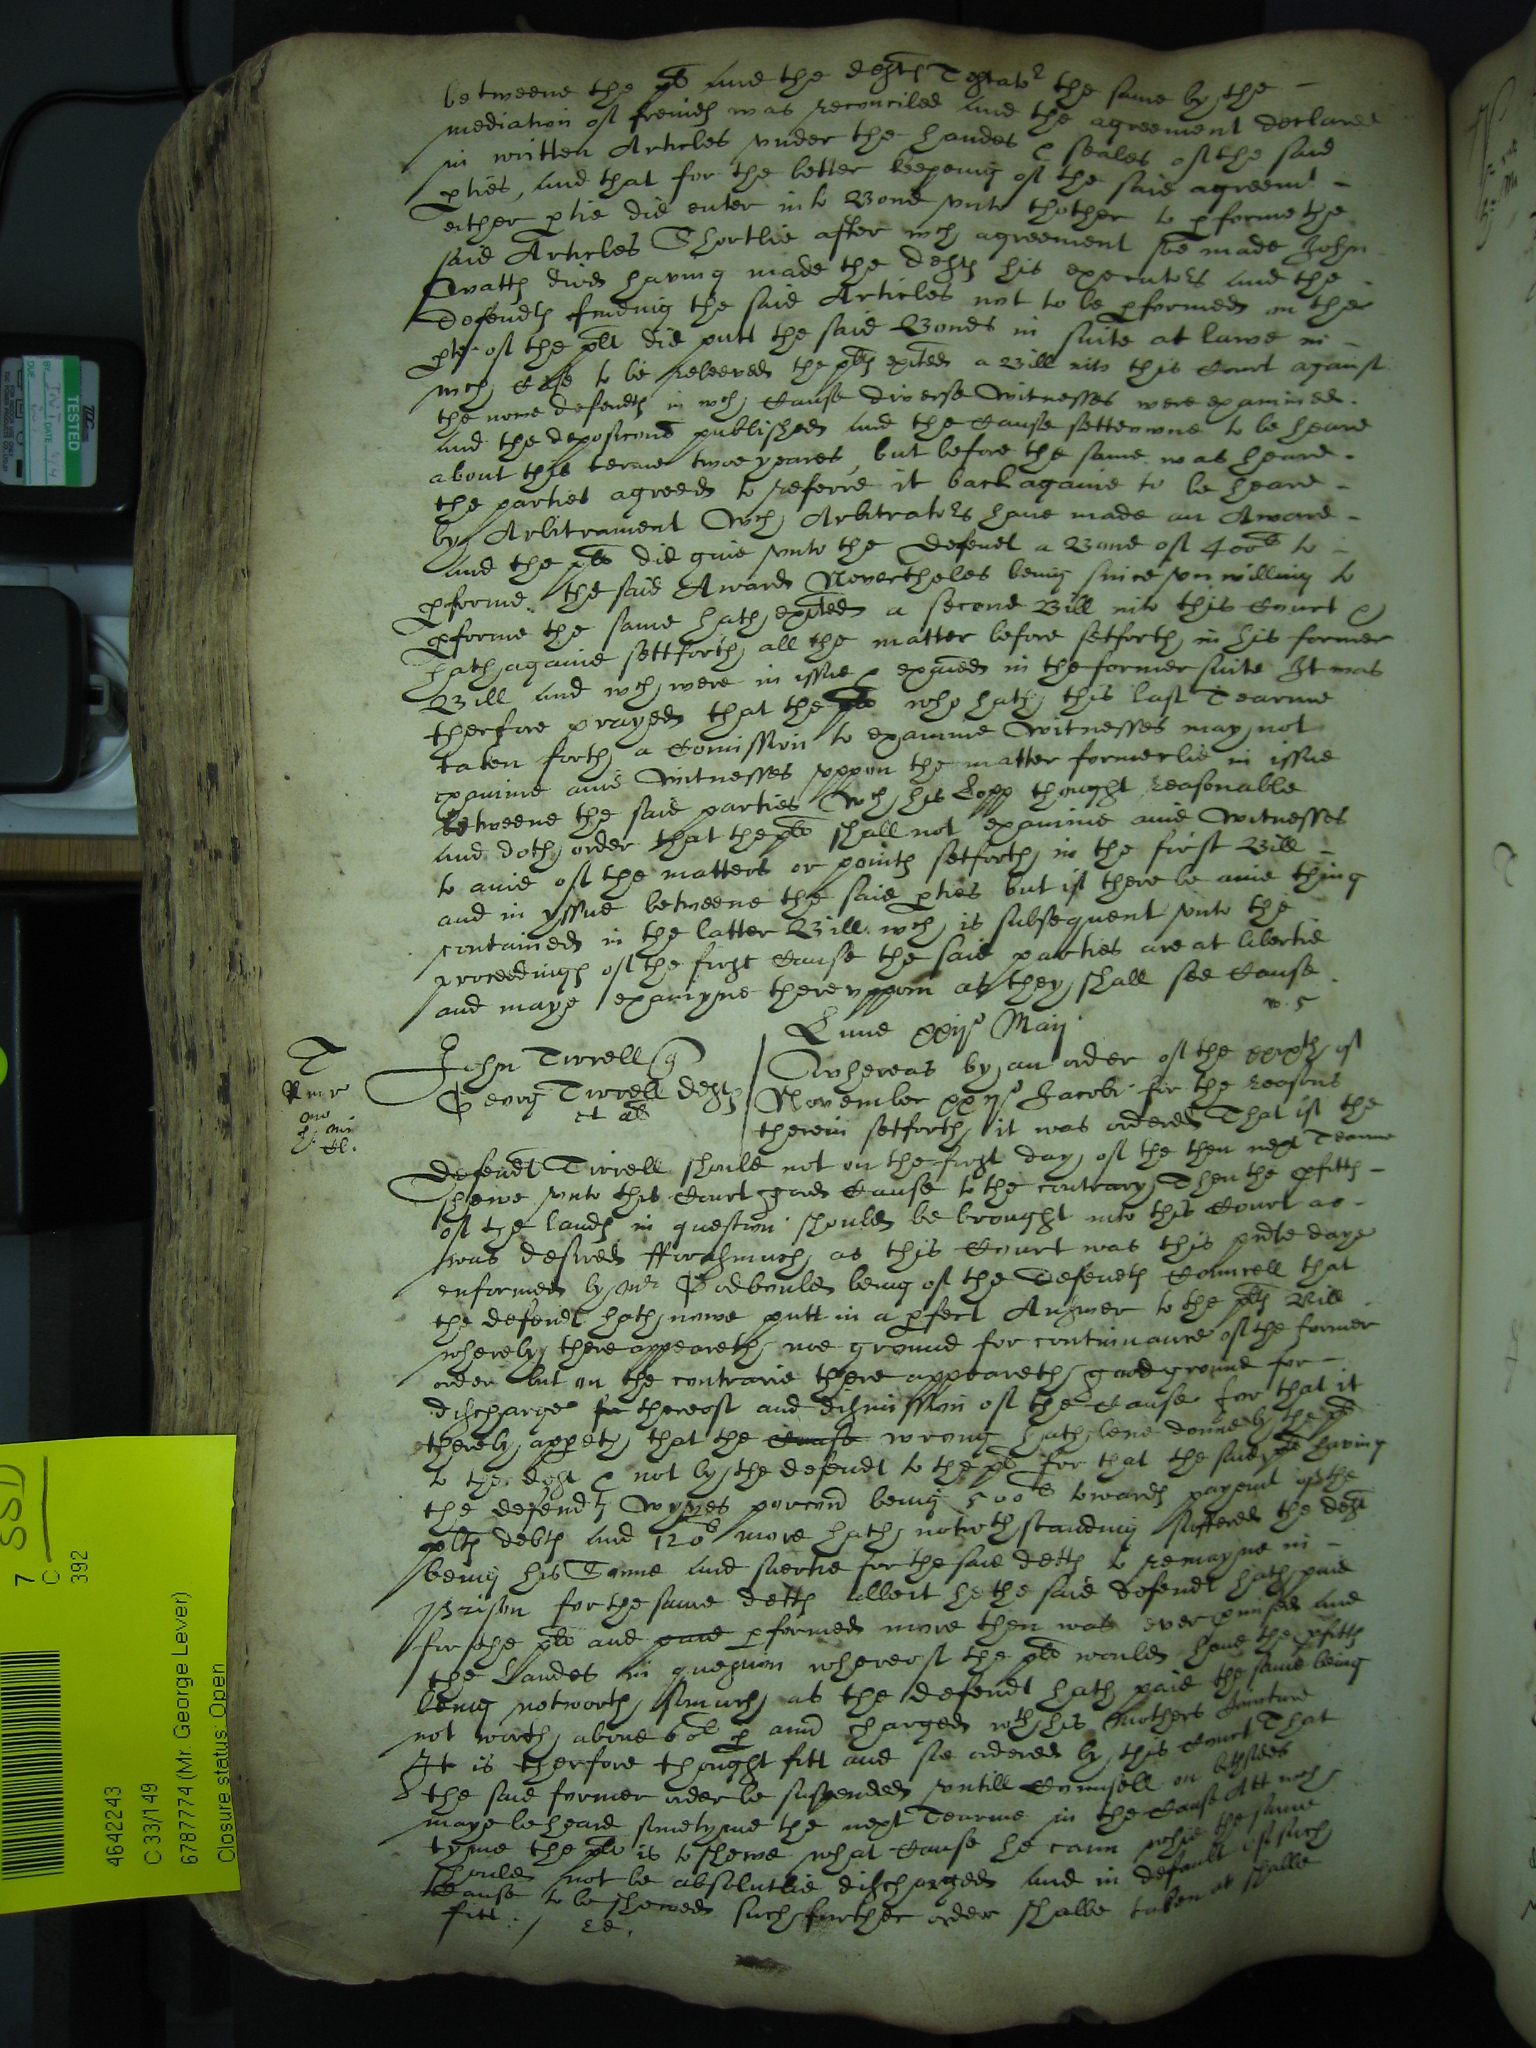 betweene the plt and the defts Testator the same by the
mediation of freinds was reconciled and the agreement declared
in written Articles under the handes & seales of the said
pties, and that for the better keepeing of the said agreemt
either ptie did enter into Bond unto thother to pforme the
said Articles Shortlie after wch agreement soe made John
Watts died having made the defts his executors and the
Defendts finding the said Articles not to be pformed on the
pte of the plt did putt the said Bonds in suite at lawe in
wch case to be releeved the plts exited a Bill into this Court against
the nowe defendts in wch Cause diverse Witnesses were examined
and the deposicons published and the Cause sett downe to be heard
about this terme twoe yeares, but before the same was heard
the parties agreed to referre it back againe to be heard
by Arbitrament Wch Arbitrators have made an Award
and the plt did give unto the Defendt a Bond of 400l to
pforme the said Award Nevertheles being since unwilling to
pforme the same hath exited a second Bill into this Court &
hath againe settforth all the matter before setforth in his former
Bill and wch were in issue & exaied in the former suite It was
therfore prayed that the plt who hath this last Tearme
taken forth a Comission to examine Witnesses may not
examine anie Witnesses uppon the matter formerlie in issue
betweene the said parties Wch his Lopp thought reasonable
and doth order that the plt shall not examine anie Witnesses
to anie of the matters or points setforth in the first Bill
and in yssue betweene the said pties but if there be anie thing
contained in the latter Bill wch is subsequent unto the
proceedings of the first Cause the said parties are at libertie
and maye examyne thereuppon as they shall see Cause
Lune xxijo Maij
T
John Tirrell
Georg Tirrell Defts
et al
Whereas by an order of the xxixth of
November xxijo Jacobi for the reasons
therein setforth it was ordered That if the
Defendt Tirrell should not on the first day of the then next Tearme
shewe unto this Court good Cause to the contrary Then the pfitts
of the lands in question should be brought into this Court as
was desired fforasmuch as this Court was this pnte daye
enformed by Mr Godbould being of the Defendts Councell that
the defendt hath nowe putt in a pfect Answer to the plts Bill
whereby there appeareth noe ground for continuance of the former
order but on the contrarie there appeareth good ground for
discharge for thereof and dismission of the Cause for that it
thereby appeth that the Cause wrong hath bene donne by the plt
to the deft & not by the defendt to the plt for that the said plt having
the defendts Wyves porcon being 500l towards payemt of the
plts debts and 120l more hath notwthstanding suffered the deft
being his Sonne and suertie for the said detts to remayne in
Prison for the same detts albeit he the said defendt hath paid
for the plt and paid pformed more then was ever pmised and
the Landes in question whereof the plt would have the pfitts
being not worth somuch as the defendt hath paid the same being
not worth above 60l p ann charged wth his mothers Joincture
It is therfore thought fitt and soe ordered by this Court That
the said former order be suspended untill Counsell on bothsides
maye be heard sometyme the next Tearme in the Cause Att wch
tyme the plt is to shewe what Cause he cann whie the same
should not be absolutlie discharged and in default of such
Cause to be shewed such further order shalbe taken as shalbe
fitt.
TESTED
4642243
C 33/149
6787774 (Mr. George Lever)
Closure status: Open
7
C
392
SSD